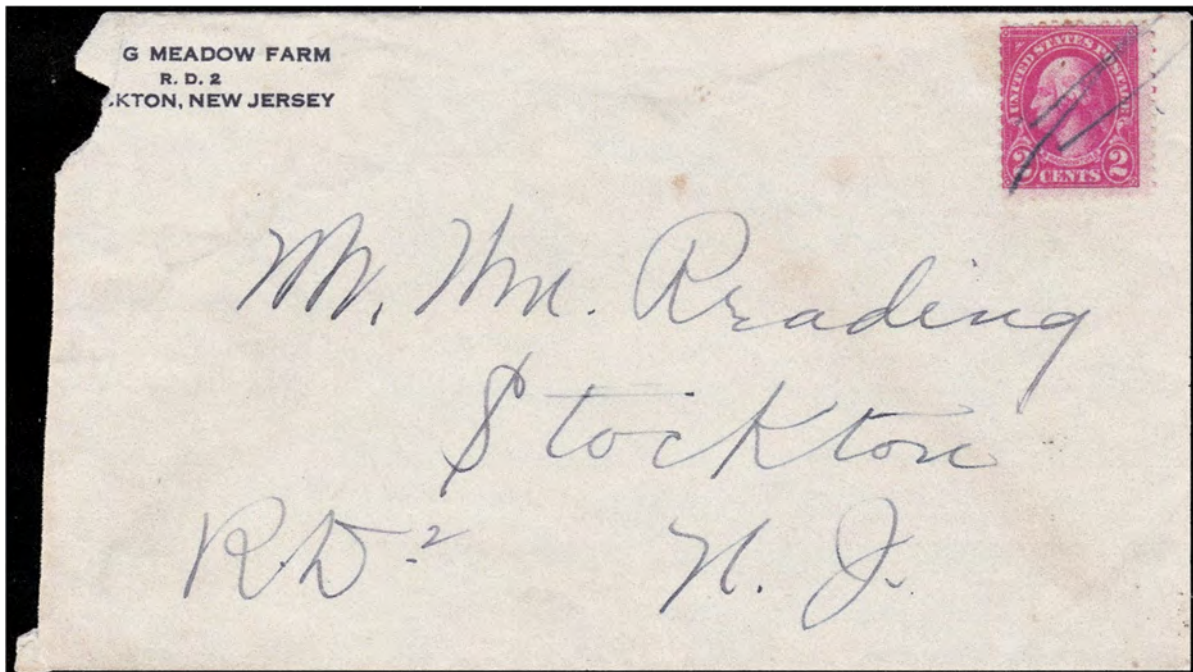 G MEADOW FARM
R. D. 2
KTON, NEW JERSEY
UNITED STATES POSTAGE
WASHINGTON
2 CENTS 2
Mr. Wm. Reading
Stockton
R.D. 2 N. J.